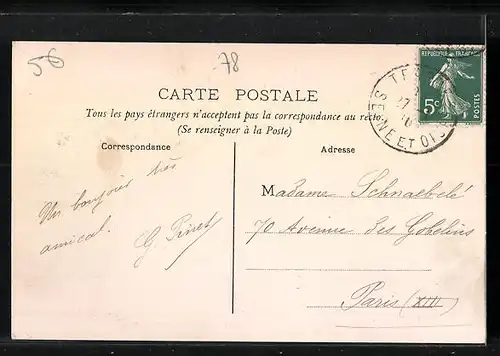 56
78
CARTE POSTALE
Tous les pays étrangers n'acceptent pas la correspondance au recto
(Se renseigner à la Poste)
Correspondance
Adresse
REPUBLIQUE FRANÇAISE
5c
POSTES
27
SEINE ET OISE
Un bonjour très
amical.
G.
Madame Schnaebelé
70 Avenue des Gobelins
Paris (XIII)